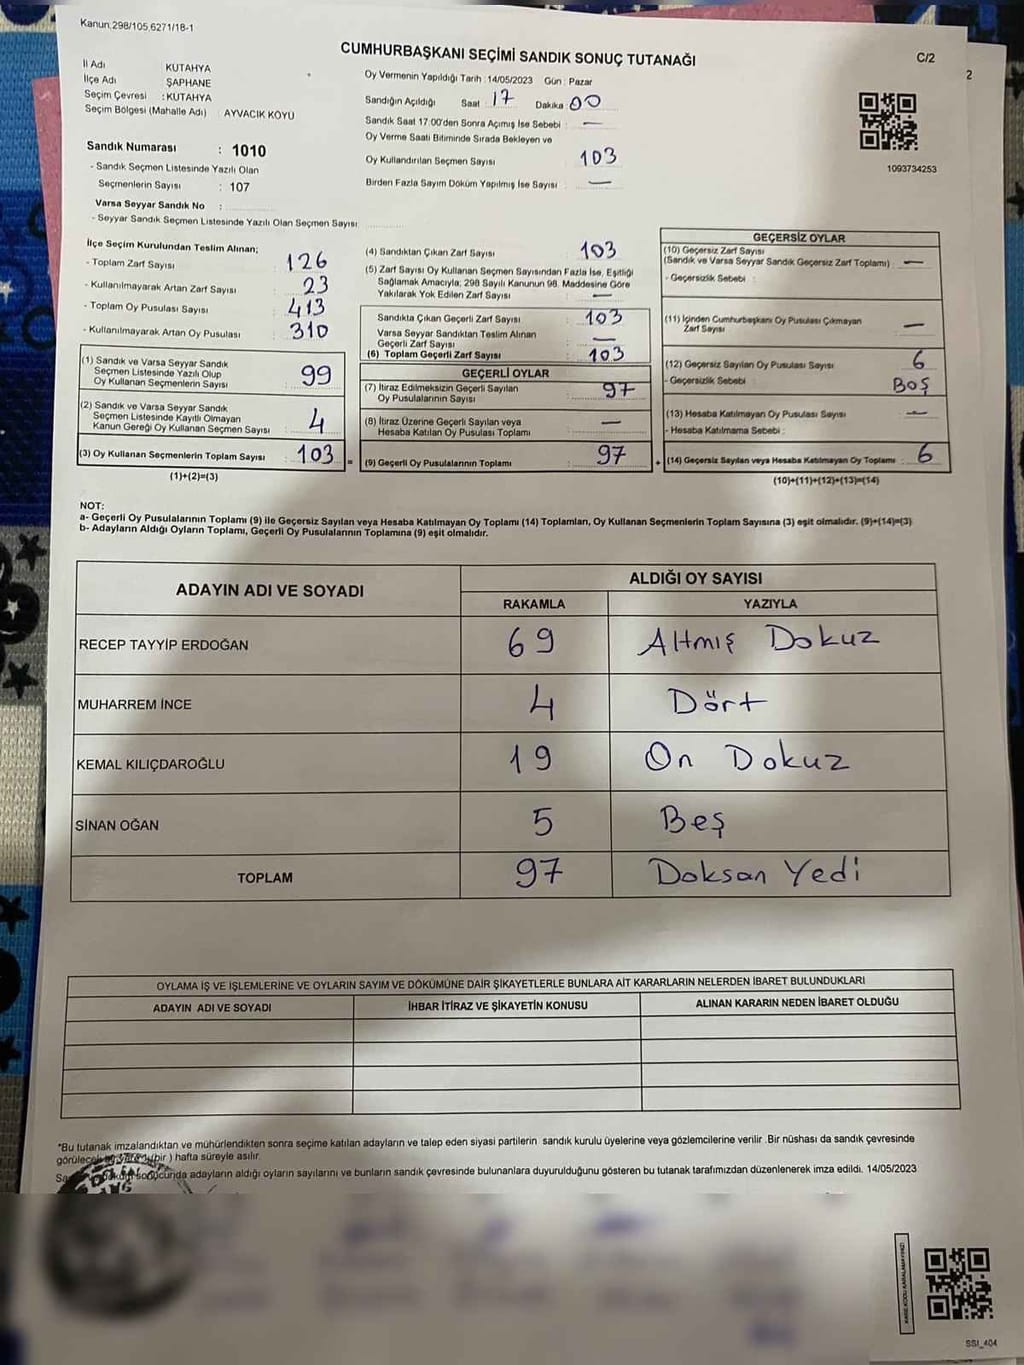 Kanun:298/105,6271/18-1
CUMHURBAŞKANI SEÇİMİ SANDIK SONUÇ TUTANAĞI
C/2
2
İl Adı KUTAHYA
İlçe Adı ŞAPHANE
Seçim Çevresi : KUTAHYA
Seçim Bölgesi (Mahalle Adı) : AYVACIK KOYU
Oy Vermenin Yapıldığı Tarih :14/05/2023 Gün : Pazar
Sandığın Açıldığı Saat : 17 Dakika : 00
Sandık Saat 17:00'den Sonra Açımış İse Sebebi : —
Oy Verme Saati Bitiminde Sırada Bekleyen ve
Oy Kullandırılan Seçmen Sayısı 103
Birden Fazla Sayım Döküm Yapılmış İse Sayısı : —
1093734253
Sandık Numarası : 1010
- Sandık Seçmen Listesinde Yazılı Olan
Seçmenlerin Sayısı : 107
Varsa Seyyar Sandık No :
- Seyyar Sandık Seçmen Listesinde Yazılı Olan Seçmen Sayısı
İlçe Seçim Kurulundan Teslim Alınan;
- Toplam Zarf Sayısı : 126
- Kullanılmayarak Artan Zarf Sayısı : 23
- Toplam Oy Pusulası Sayısı : 413
- Kullanılmayarak Artan Oy Pusulası : 310
(1) Sandık ve Varsa Seyyar Sandık
Seçmen Listesinde Yazılı Olup
Oy Kullanan Seçmenlerin Sayısı : 99
(2) Sandık ve Varsa Seyyar Sandık
Seçmen Listesinde Kayıtlı Olmayan
Kanun Gereği Oy Kullanan Seçmen Sayısı : 4
(3) Oy Kullanan Seçmenlerin Toplam Sayısı : 103 =
(1)+(2)=(3)
(4) Sandıktan Çıkan Zarf Sayısı : 103
(5) Zarf Sayısı Oy Kullanan Seçmen Sayısından Fazla İse, Eşitliği
Sağlamak Amacıyla; 298 Sayılı Kanunun 98. Maddesine Göre
Yakılarak Yok Edilen Zarf Sayısı : —
Sandıkta Çıkan Geçerli Zarf Sayısı : 103
Varsa Seyyar Sandıktan Teslim Alınan
Geçerli Zarf Sayısı : —
(6) Toplam Geçerli Zarf Sayısı : 103
GEÇERLİ OYLAR
(7) İtiraz Edilmeksizin Geçerli Sayılan
Oy Pusulalarının Sayısı : 97
(8) İtiraz Üzerine Geçerli Sayılan veya
Hesaba Katılan Oy Pusulası Toplamı : —
(9) Geçerli Oy Pusulalarının Toplamı : 97 +
GEÇERSİZ OYLAR
(10) Geçersiz Zarf Sayısı
(Sandık ve Varsa Seyyar Sandık Geçersiz Zarf Toplamı) : —
- Geçersizlik Sebebi :
(11) İçinden Cumhurbaşkanı Oy Pusulası Çıkmayan
Zarf Sayısı : —
(12) Geçersiz Sayılan Oy Pusulası Sayısı : 6
- Geçersizlik Sebebi : BOŞ
(13) Hesaba Katılmayan Oy Pusulası Sayısı : —
- Hesaba Katılmama Sebebi :
(14) Geçersiz Sayılan veya Hesaba Katılmayan Oy Toplamı : 6
(10)+(11)+(12)+(13)=(14)
NOT:
a- Geçerli Oy Pusulalarının Toplamı (9) ile Geçersiz Sayılan veya Hesaba Katılmayan Oy Toplamı (14) Toplamları, Oy Kullanan Seçmenlerin Toplam Sayısına (3) eşit olmalıdır. (9)+(14)=(3)
b- Adayların Aldığı Oyların Toplamı, Geçerli Oy Pusulalarının Toplamına (9) eşit olmalıdır.
ADAYIN ADI VE SOYADI ALDIĞI OY SAYISI
RAKAMLA YAZIYLA
RECEP TAYYİP ERDOĞAN 69 Altmış Dokuz
MUHARREM İNCE 4 Dört
KEMAL KILIÇDAROĞLU 19 On Dokuz
SİNAN OĞAN 5 Beş
TOPLAM 97 Doksan Yedi
OYLAMA İŞ VE İŞLEMLERİNE VE OYLARIN SAYIM VE DÖKÜMÜNE DAİR ŞİKAYETLERLE BUNLARA AİT KARARLARIN NELERDEN İBARET BULUNDUKLARI
ADAYIN ADI VE SOYADI İHBAR İTİRAZ VE ŞİKAYETİN KONUSU ALINAN KARARIN NEDEN İBARET OLDUĞU
*Bu tutanak imzalandıktan ve mühürlendikten sonra seçime katılan adayların ve talep eden siyasi partilerin sandık kurulu üyelerine veya gözlemcilerine verilir .Bir nüshası da sandık çevresinde
(bir ) hafta süreyle asılır.
sonucunda adayların aldığı oyların sayılarını ve bunların sandık çevresinde bulunanlara duyurulduğunu gösteren bu tutanak tarafımızdan düzenlenerek imza edildi. 14/05/2023
KARE KODU KARALAMAYINIZ!
SSI_404